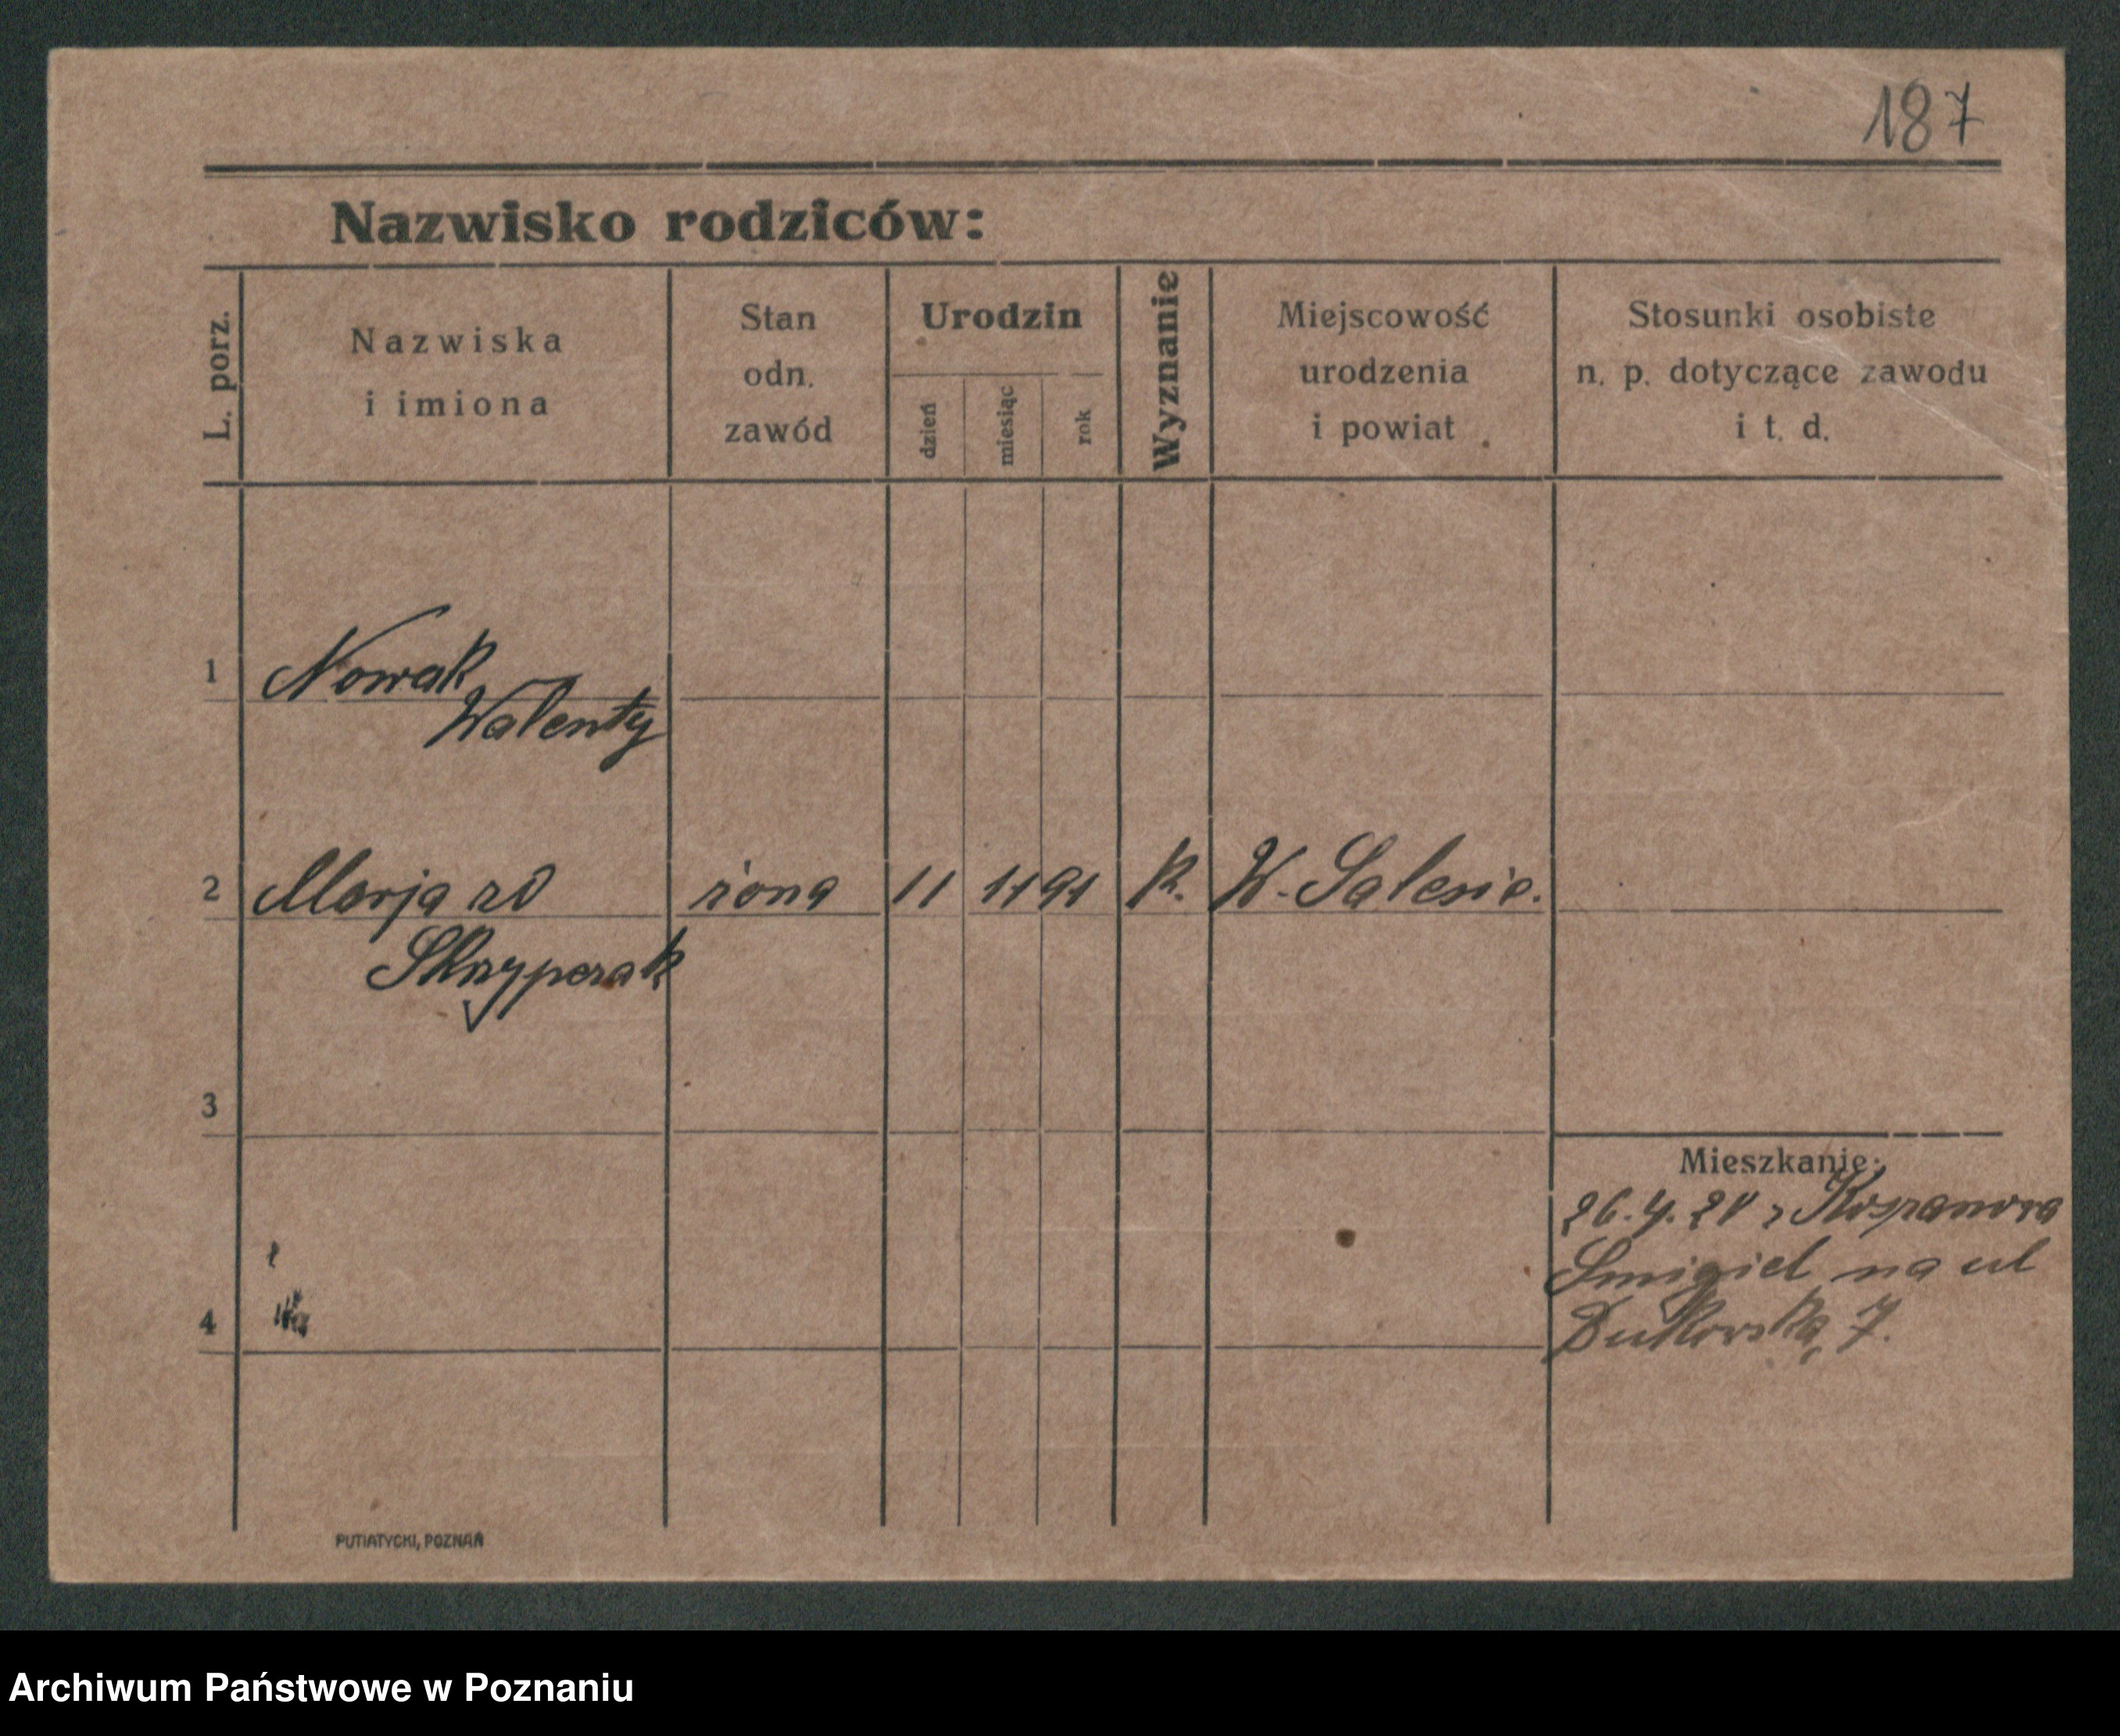 187
Nazwisko rodziców:
L. porz.
Nazwiska
i imiona
Stan
odn.
zawód
Urodzin
dzień
miesiąc
rok
Wyznanie
Miejscowość
urodzenia
i powiat
Stosunki osobiste
n. p. dotyczące zawodu
i t. d.
1 Nowak
Walenty
2 Marja zd żona 11 11 91 k. W.
3
Mieszkanie:
26.4.
Śmigiel na ul
7.
4
PUTIATYCKI, POZNAŃ
Archiwum Państwowe w Poznaniu